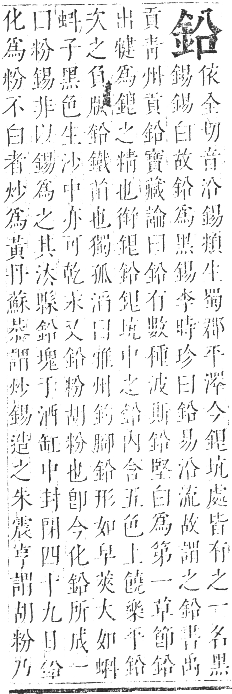 鉛依全切音沿錫類生蜀郡平澤今銀坑處皆有之一名黑
錫錫白故鉛爲黑錫李時珍曰鉛易沿流故謂之鉛書禹
貢青州貢鉛寶藏論曰鉛有數種波斯鉛堅白爲第一草節鉛
出犍爲銀之精也銜銀鉛銀坑中之鉛內含五色上饒樂平鉛
次之負版鉛鐵苗也獨孤滔曰雅州鈞脚鉛形如皁莢大如蝌
蚪子黑色生沙中亦可乾汞又鉛粉胡粉也卽今化鉛所成一
曰粉錫非以錫爲之其法鎔鉛塊于酒缸中封閉四十九日始
化爲粉不白者炒爲黃丹蘇恭謂炒錫造之朱震亨謂胡粉乃